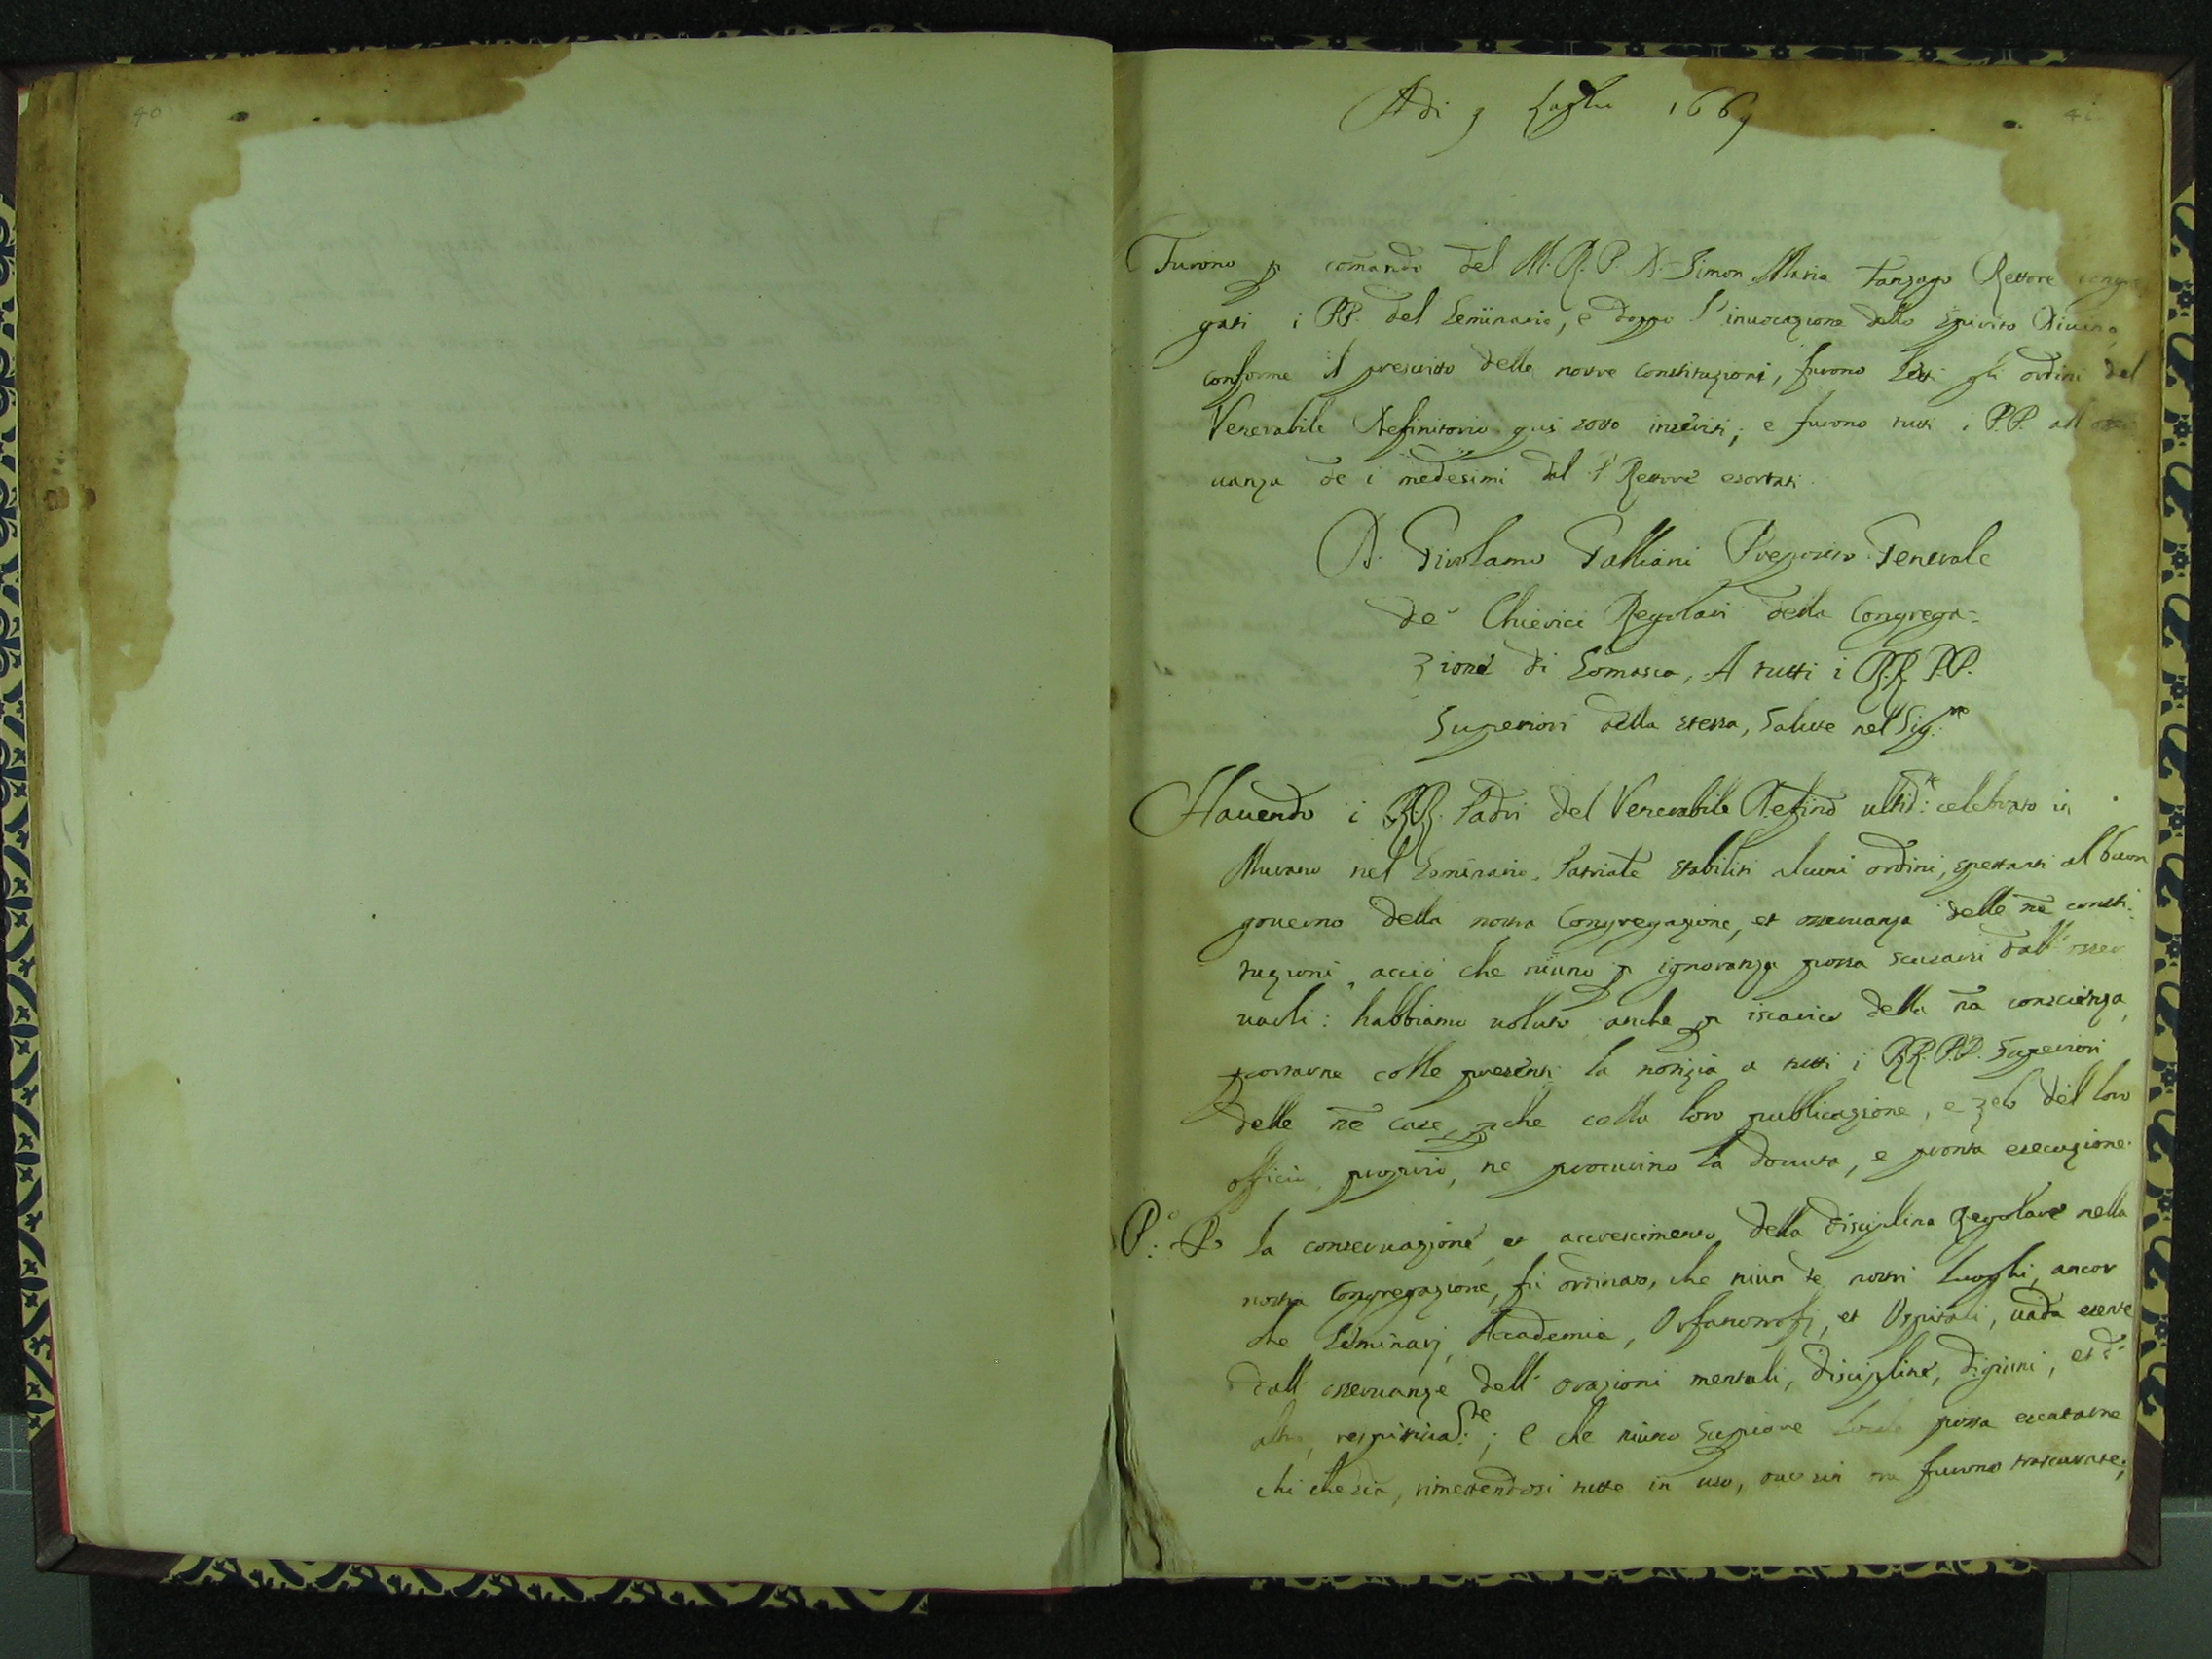 40
41
Adi 9 Luglio 1669
Furono p comando del M. R. P. D. Simon Maria Tanzago Rettore congre
gati i PP. del Seminario, e doppo l'inuocazione dello Spirito Diuino,
conforme il prescritto delle nostre constituzioni, furono letti gli ordini del
Venerabile Definitorio qui sotto inseriti; e furono tutti i P.P. all' osser
uanza de i medesimi dal P Rettore esortati.
D. Girolamo Galliani Preposito Generale
de' Chierici Regolari della Congrega=
zione di Somasca, A tutti i R.R. P.P.
Superiori della stessa, Salute nel Sig.re
Hauendo i RR. Padri del Venerabile Definō celebrato in
Murano nel Seminario Patriale stabiliti alcuni ordini, spettanti al buon
gouerno della nostra Congregazione, et osseruanza delle nr̄e consti-
tuzioni, acciò che niuno p ignoranza possa scusarsi dall' osser
uarli: habbiamo uoluto, anche p iscarico della nr̄a conscienza,
portarne colle presenti la notizia a tutti i RR. P.P. Superiori
delle nr̄e case, pche colla loro publicazione, e zelo del loro
officio proprio, ne procurino la douuta, e pronta esecuzione.
P.o Pr la conseruazione, et accrescimento della disciplina Regolare nella
nostra Congregazione, fù ordinato, che niun de nostri luoghi, ancor
che Seminarj, Accademie, Orfanotrofj, et Ospitali, uada esente
dall' osseruanze dell' orazioni mentali, discipline, digiuni, et d'
altro, ; e che niuno Supiore possa esentarne
chi che sia, rimettendosi tutto in uso, oue sin ora furono trascurate;